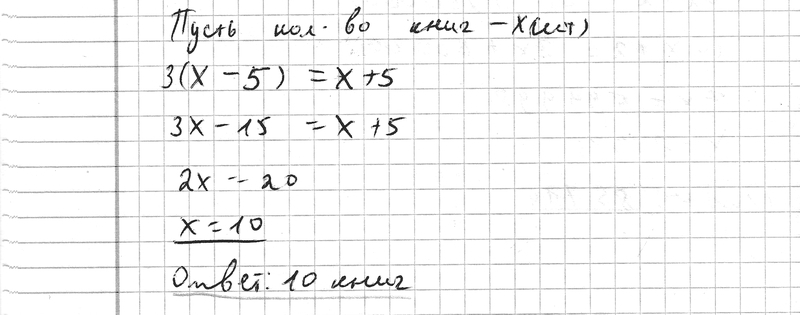 Пусть кол-во книг – X(шт)
3(X – 5) = X + 5
3X – 15 = X + 5
2X = 20
X = 10
Ответ: 10 книг